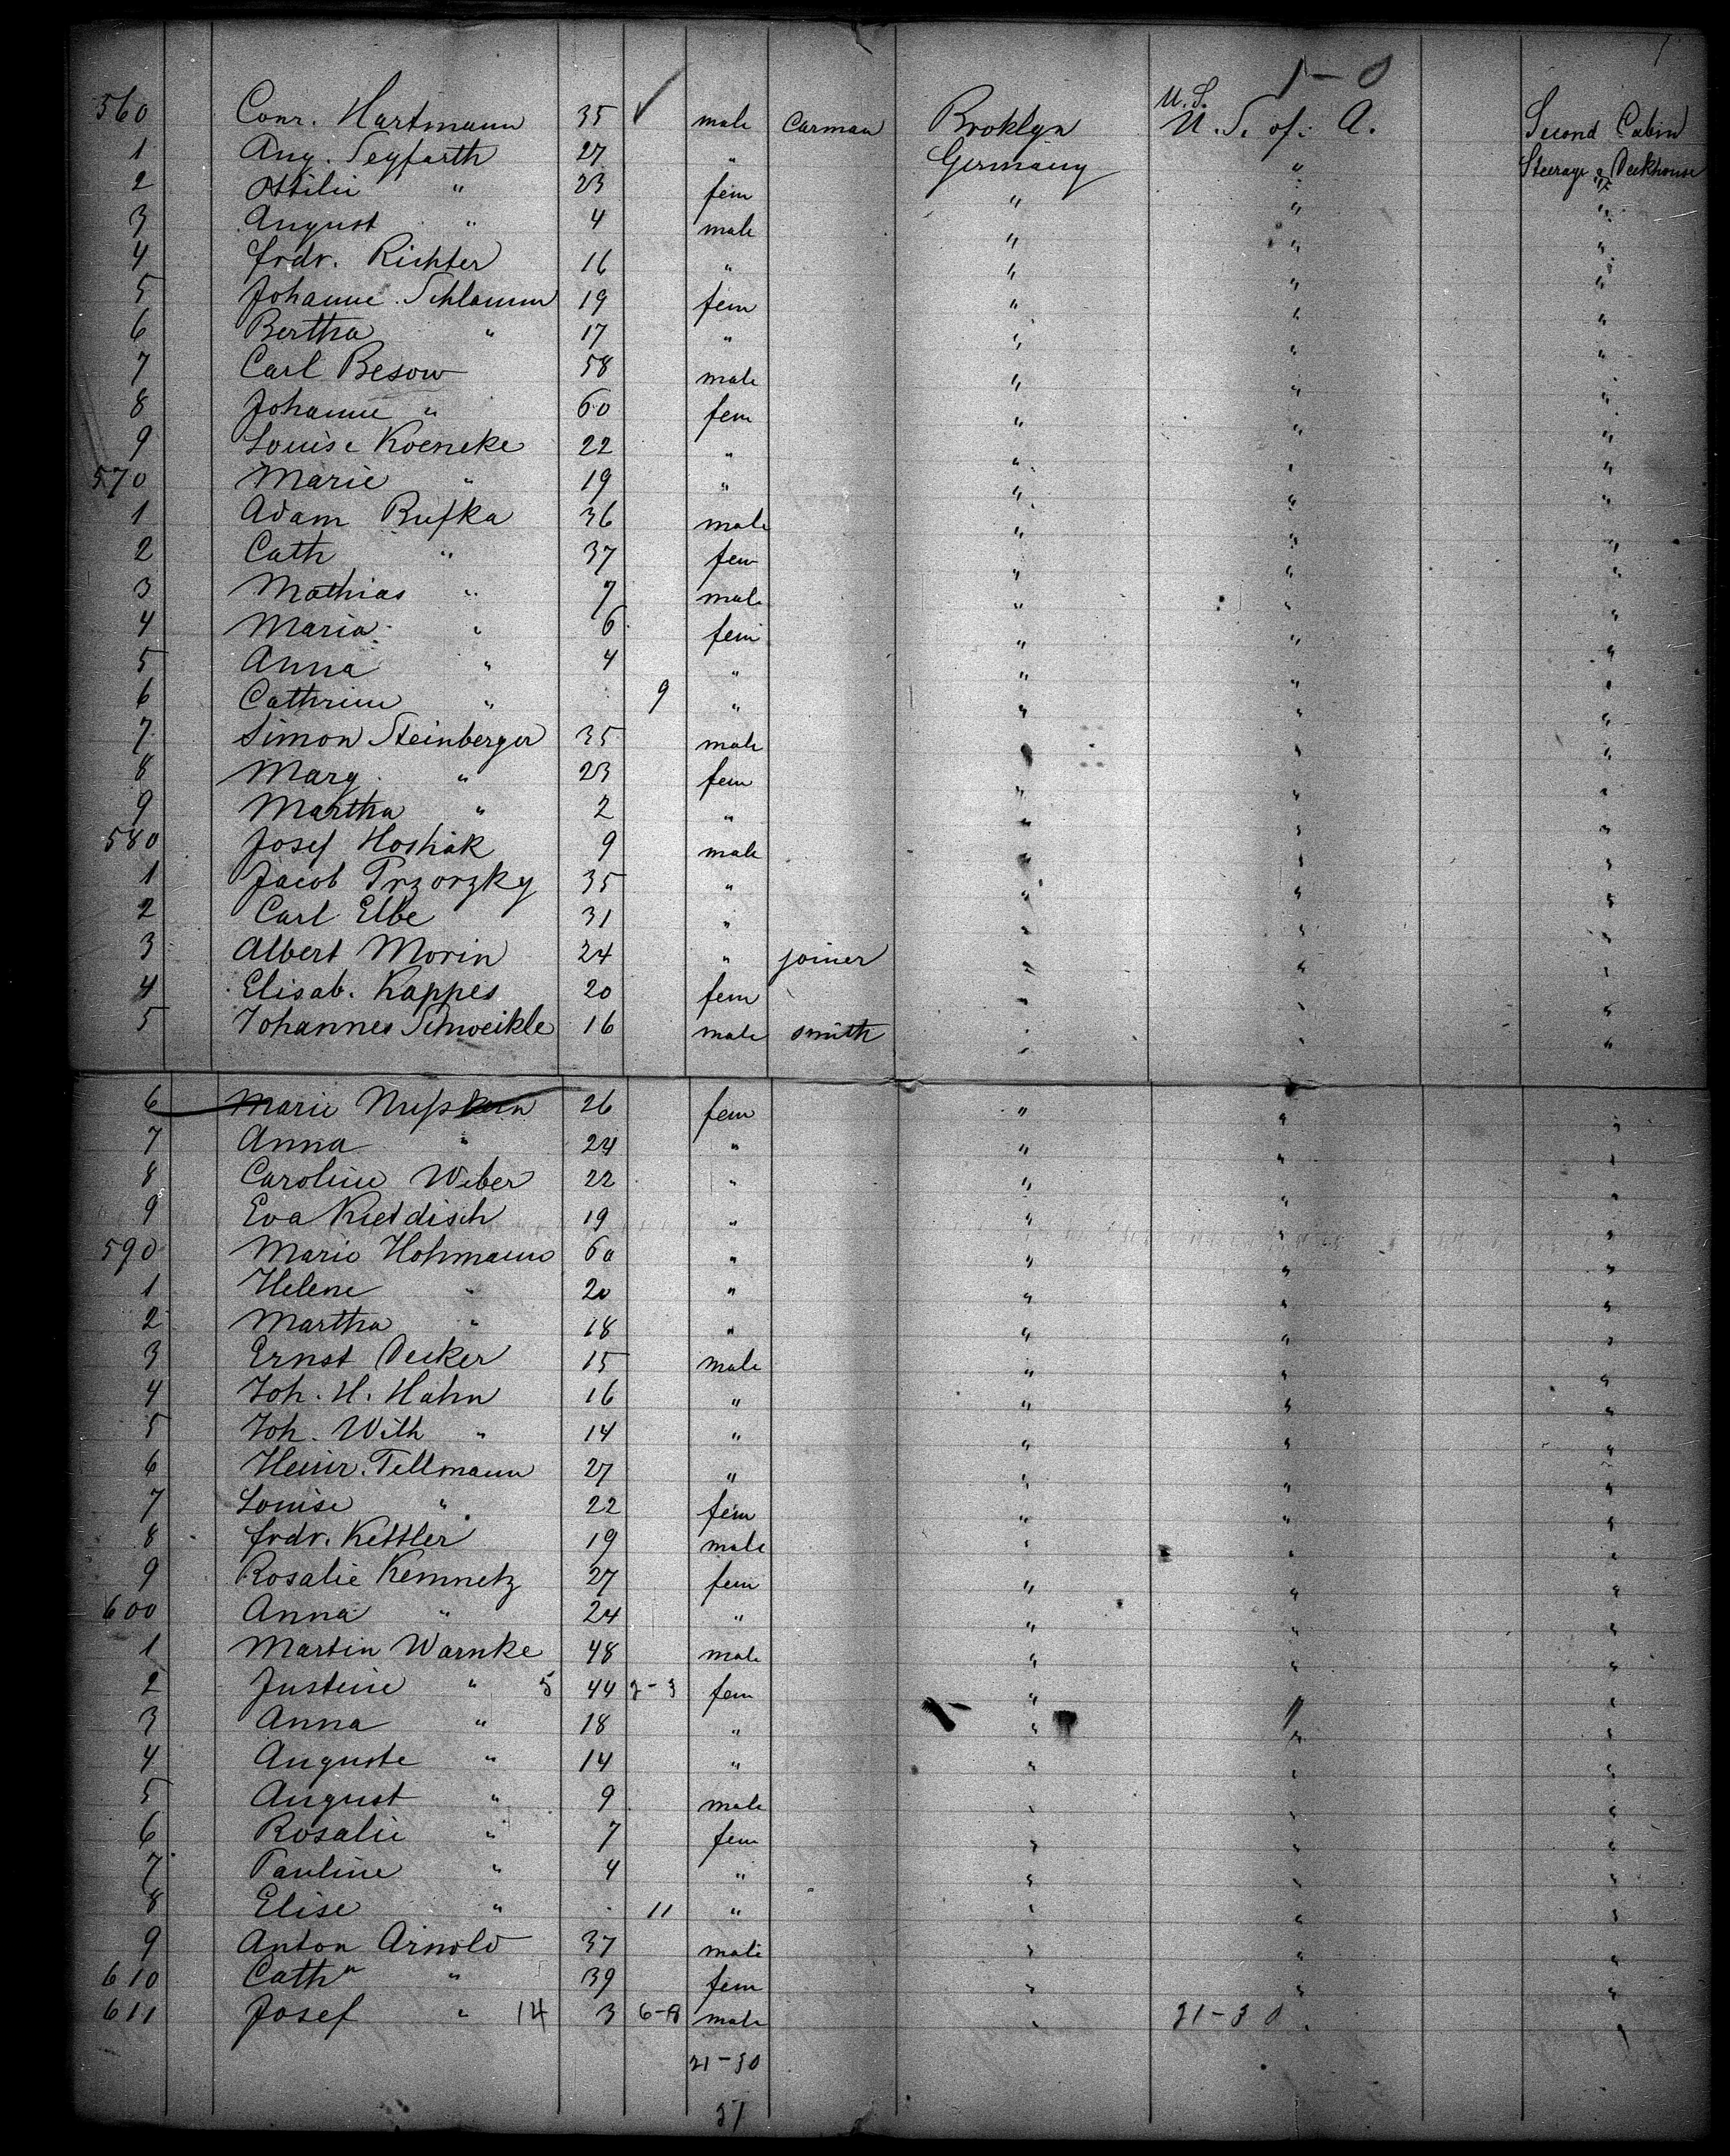 1-0
U.S.
560 Conr. Hartmann 35 ✓ male Carman Broklyn U. S. of. A. Second Cabin
1 Aug. Seyfarth 27 " Germany " Steerage & Deckhouse
2 Ottilie " 23 fem " " "
3 August " 4 male " " "
4 frdr. Richter 16 " " " "
5 Johanne Schlamm 19 fem " " "
6 Bertha " 17 " " " "
7 Carl Besow 58 male " " "
8 Johanne " 60 fem " " "
9 Louise Koeneke 22 " " " "
570 Marie " 19 " " " "
1 Adam Bufka 36 male " " "
2 Cath " 37 fem " " "
3 Mathias " 7 male " " "
4 Maria " 6 fem " " "
5 Anna " 4 " " " "
6 Cathrine " 9 " " " "
7 Simon Steinberger 35 male " " "
8 Marg. " 23 fem " " "
9 Martha " 2 " " " "
580 Josef Hoshak 9 male " " "
1 Jacob Przorzky 35 " " " "
2 Carl Elbe 31 " " " "
3 Albert Morin 24 " joiner " " "
4 Elisab. Kappes 20 fem " " "
5 Johannes Schweikle 16 male smith " " "
6 Marie 26 fem " " "
7 Anna " 24 " " " "
8 Caroline Weber 22 " " " "
9 Eva 19 " " " "
590 Marie Hohmann 60 " " " "
1 Helene " 20 " " " "
2 Martha " 18 " " " "
3 Ernst Decker 15 male " " "
4 Joh. H. Hahn 16 " " " "
5 Joh. Wilh " 14 " " " "
6 Heinr. Tellmann 27 " " " "
7 Louise " 22 fem " " "
8 frdr. Kettler 19 male " " "
9 Rosalie Kemnetz 27 fem " " "
600 Anna " 24 " " " "
1 Martin Warnke 48 male " " "
2 Justine " 5 44 2-3 fem " " "
3 Anna " 18 " " " "
4 Auguste " 14 " " " "
5 August " 9 male " " "
6 Rosalie " 7 fem " " "
7 Pauline " 4 " " " "
8 Elise " 11 " " " "
9 Anton Arnold 37 male " " "
610 Cathn " 39 fem " " "
611 Josef " 14 3 6-8 male " 21-30 "
21-30
51